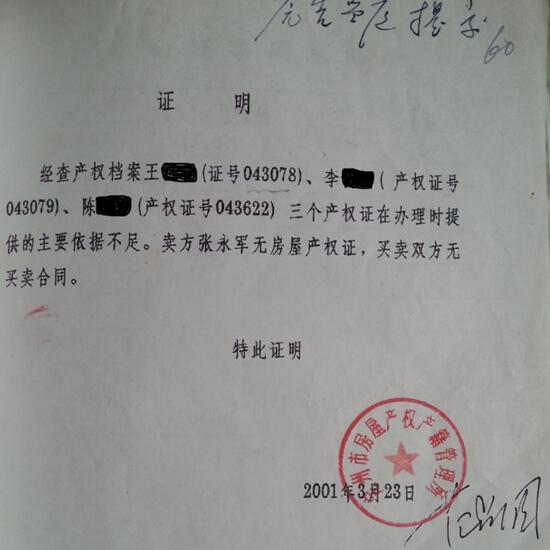 60
证 明
经查产权档案王 (证号043078)、李 ( 产权证号
043079)、陈 (产权证号043622) 三个产权证在办理时提
供的主要依据不足。卖方张永军无房屋产权证，买卖双方无
买卖合同。
特此证明
州市房屋产权产籍管理
2001年3月23日